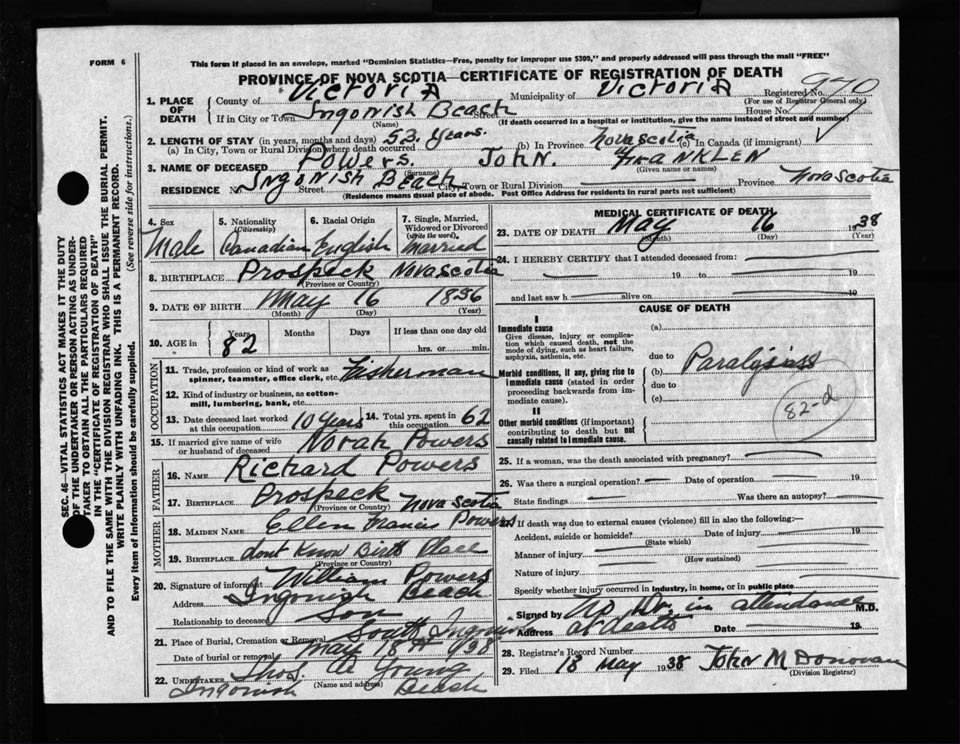 FORM 6
This form if placed in an envelope, marked "Dominion Statistics—Free, penalty for improper use $300," and properly addressed will pass through the mail "FREE"
PROVINCE OF NOVA SCOTIA—CERTIFICATE OF REGISTRATION OF DEATH
1. PLACE OF DEATH County of Victoria Municipality of Victoria Registered No. 970
(For use of Registrar General only)
If in City or Town Ingonish Beach Street House No.
(Name) (If death occurred in a hospital or institution, give the name instead of street and number)
2. LENGTH OF STAY (in years, months and days) 53 years.
(a) In City, Town or Rural Division where death occurred (b) In Province Nova Scotia (c) In Canada (if immigrant)
3. NAME OF DECEASED Powers. John. Franklen
(Surname) (Given name or names)
RESIDENCE No. Ingonish Beach Street City, Town or Rural Division Province Nova Scotia
(Residence means usual place of abode. Post Office Address for residents in rural parts not sufficient)
4. Sex Male
5. Nationality (Citizenship) Canadian
6. Racial Origin English
7. Single, Married, Widowed or Divorced (write the word) Married
8. BIRTHPLACE Prospeck Nova Scotia
(Province or Country)
9. DATE OF BIRTH May 16 1856
(Month) (Day) (Year)
10. AGE in Years 82 Months Days If less than one day old
hrs. or min.
OCCUPATION
11. Trade, profession or kind of work as spinner, teamster, office clerk, etc. Fisherman
12. Kind of industry or business, as cotton-mill, lumbering, bank, etc.
13. Date deceased last worked at this occupation 10 years
14. Total yrs. spent in this occupation 62
15. If married give name of wife or husband of deceased Norah Powers
FATHER
16. NAME Richard Powers
17. BIRTHPLACE Prospeck Nova Scotia
(Province or Country)
MOTHER
18. MAIDEN NAME Ellen Francis Powers
19. BIRTHPLACE dont Know Birth Place
(Province or Country)
20. Signature of informant William Powers
Address Ingonish Beach
Relationship to deceased Son
21. Place of Burial, Cremation or Removal South Ingonish
Date of burial or removal May 18 1938
22. UNDERTAKER Thos. Young
(Name and address)
Ingonish Beach
MEDICAL CERTIFICATE OF DEATH
23. DATE OF DEATH May 16 1938
(Month) (Day) (Year)
24. I HEREBY CERTIFY that I attended deceased from:
19 to 19
and last saw h alive on 19
CAUSE OF DEATH
I
Immediate cause (a)
Give disease, injury or complication which caused death, not the mode of dying, such as heart failure, asphyxia, asthenia, etc.
due to
Morbid conditions, if any, giving rise to immediate cause (stated in order proceeding backwards from immediate cause).
(b) Paralysiss
due to
(c)
82-d
II
Other morbid conditions (if important) contributing to death but not causally related to immediate cause.
25. If a woman, was the death associated with pregnancy?
26. Was there a surgical operation? Date of operation 19
State findings Was there an autopsy?
27. If death was due to external causes (violence) fill in also the following:—
Accident, suicide or homicide? Date of injury 19
(State which)
Manner of injury
(How sustained)
Nature of injury
Specify whether injury occurred in industry, in home, or in public place
Signed by No Dr. in attendance M.D.
Address at death Date 19
28. Registrar's Record Number
29. Filed 18 May 1938 John M Donovan
(Division Registrar)
SEC. 46—VITAL STATISTICS ACT MAKES IT THE DUTY
OF THE UNDERTAKER OR PERSON ACTING AS UNDER-
TAKER TO OBTAIN ALL THE PARTICULARS REQUIRED
IN THE "CERTIFICATE OF REGISTRATION OF DEATH"
AND TO FILE THE SAME WITH THE DIVISION REGISTRAR WHO SHALL ISSUE THE BURIAL PERMIT.
WRITE PLAINLY WITH UNFADING INK. THIS IS A PERMANENT RECORD.
Every item of information should be carefully supplied. (See reverse side for instructions.)